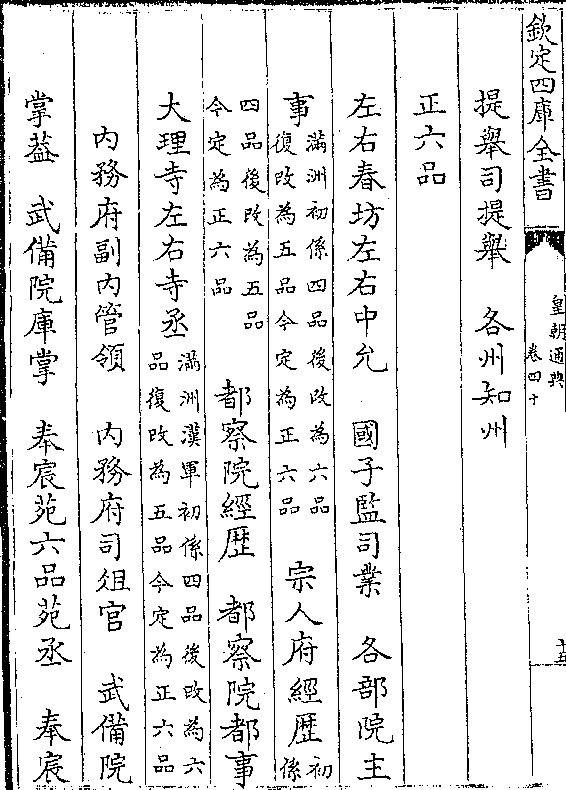 欽定四庫全書
皇朝通典
卷四十
十五
提舉司提舉　各州知州
正六品
左右春坊左右中允　國子監司業　各部院主
事滿洲初係四品後改為六品
復改為五品今定為正六品　宗人府經歷初
係
四品後改為五品
今定為正六品　都察院經歷　都察院都事
大理寺左右寺丞滿洲漢軍初係四品後改為六
品復改為五品今定為正六品
內務府副內管領　內務府司俎官　武備院
掌葢　武備院庫掌　奉宸苑六品苑丞　奉宸